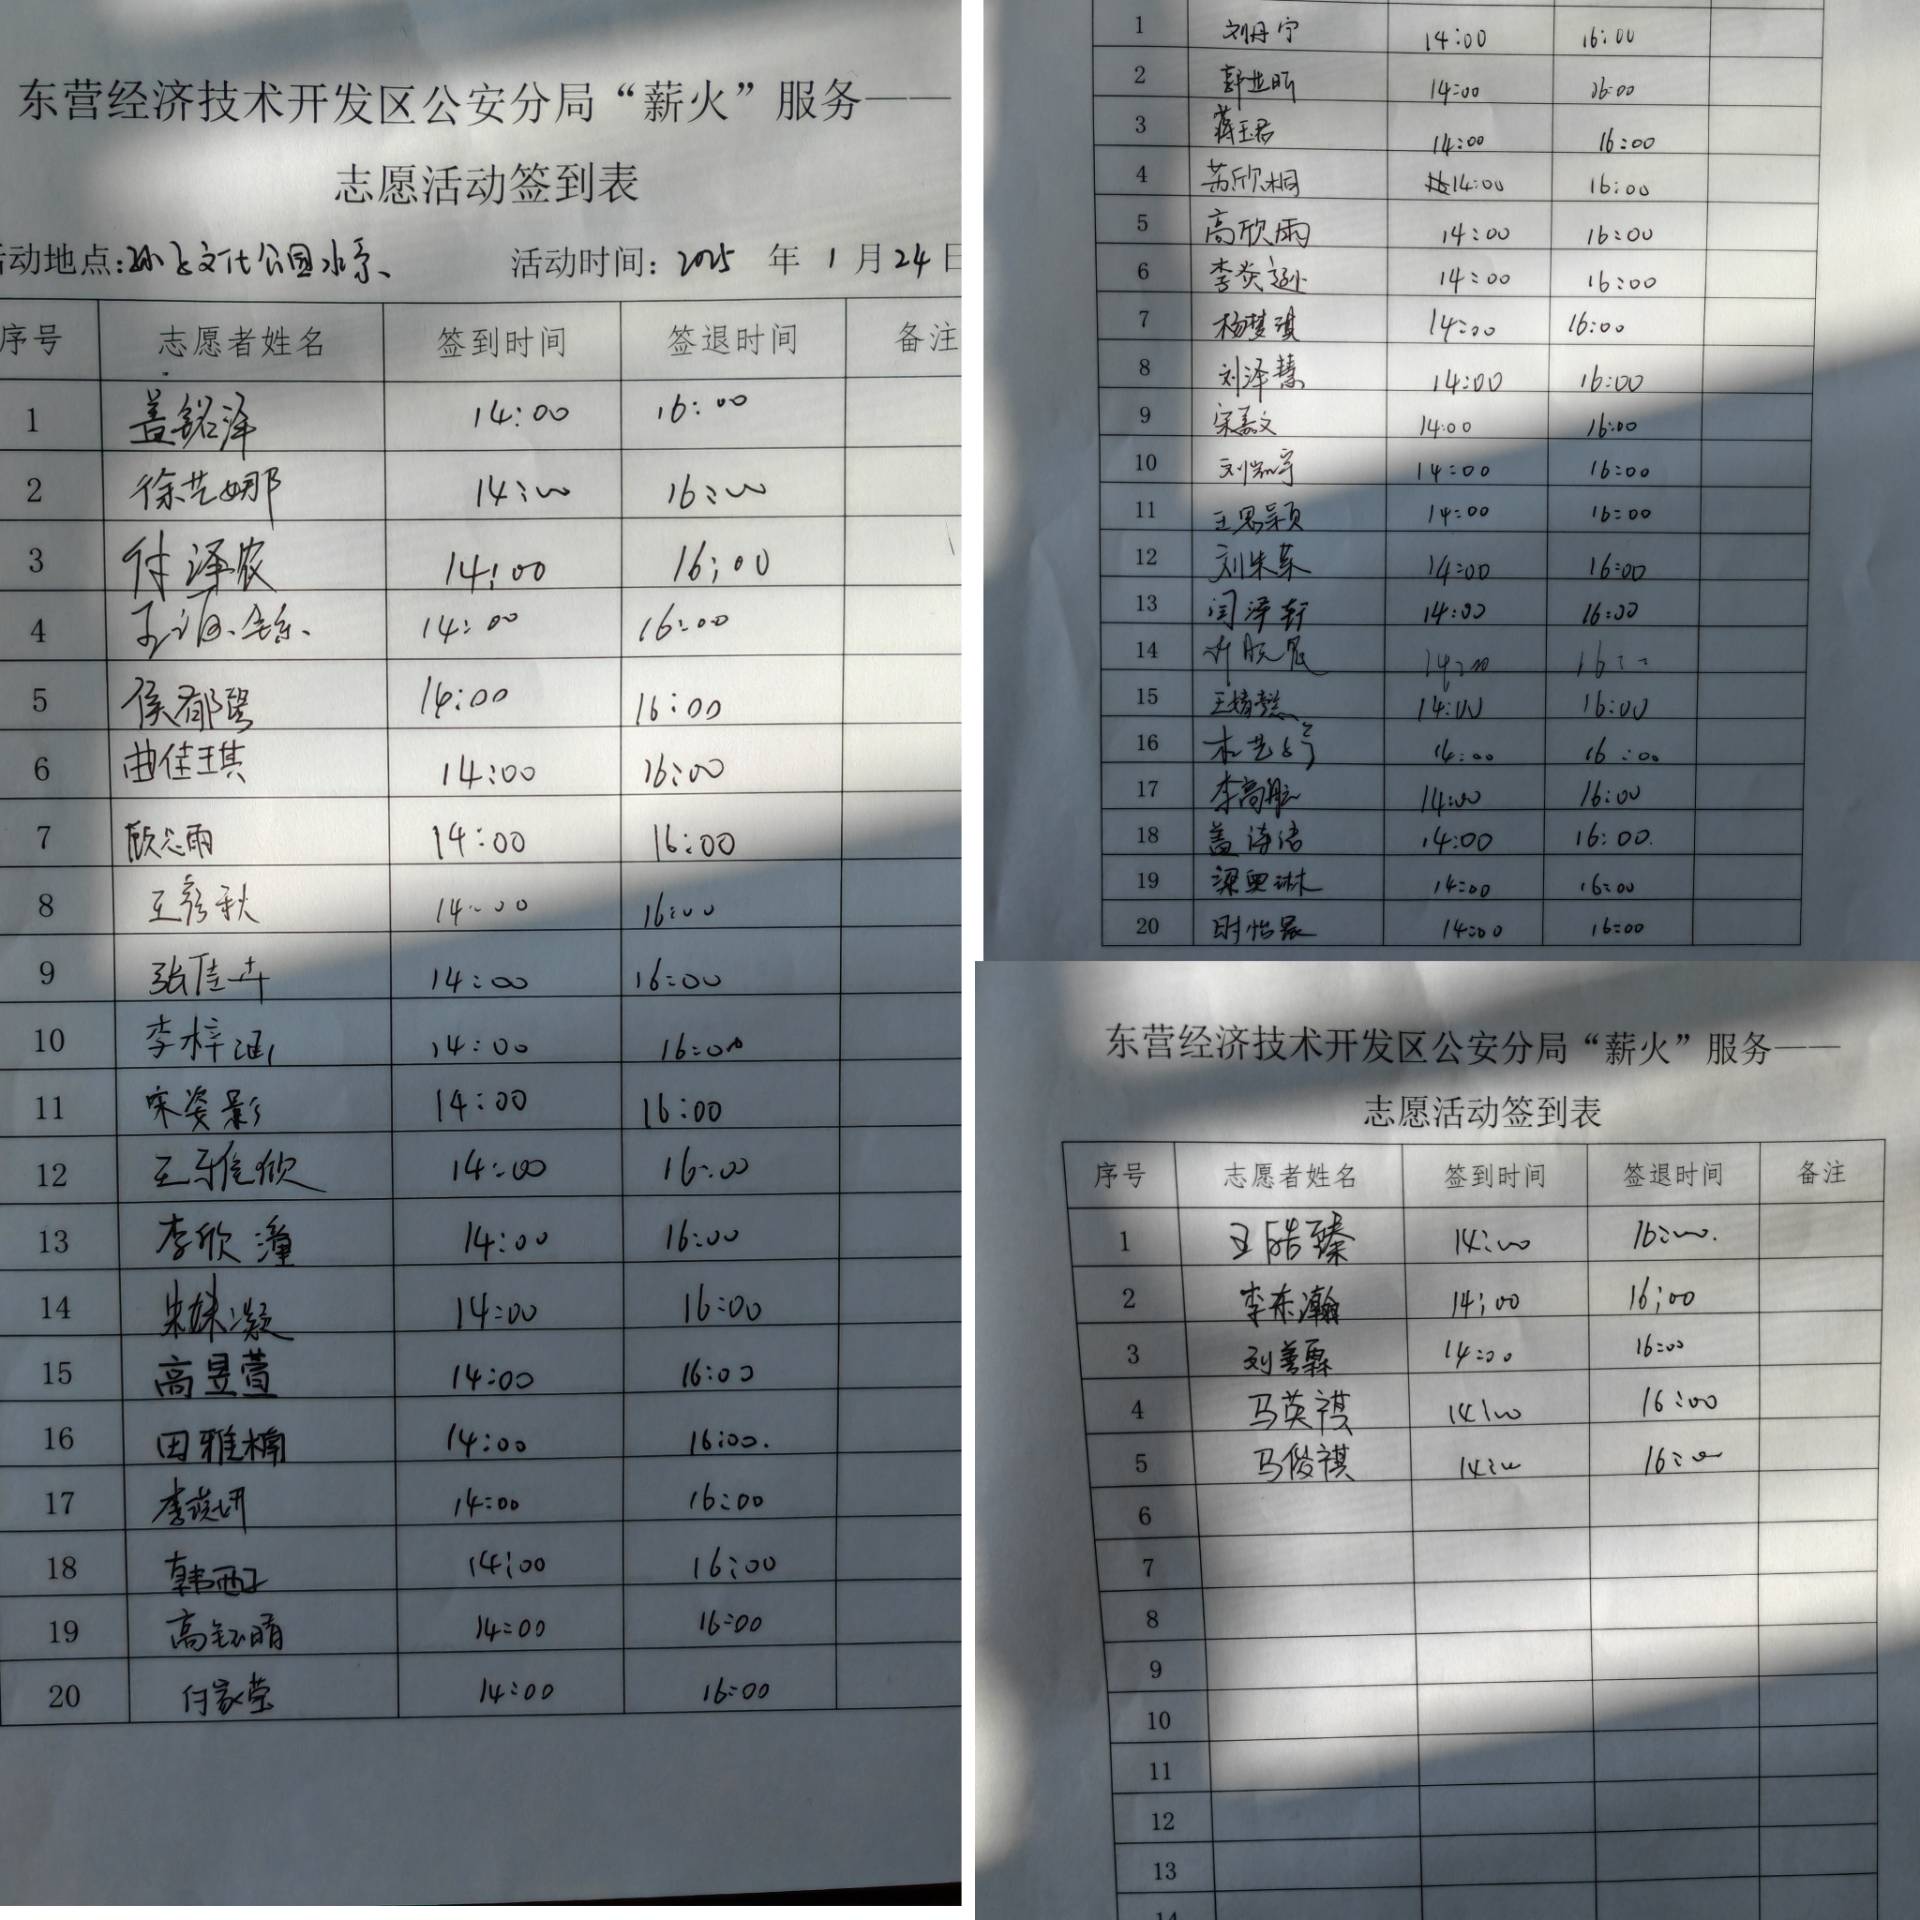 东营经济技术开发区公安分局“薪火”服务——
志愿活动签到表
活动地点:孙子文化公园水系、 活动时间: 2025 年 1 月 24 日
序号 志愿者姓名 签到时间 签退时间 备注
1 盖铭泽 14:00 16:00
2 徐艺娜 14:00 16:00
3 付泽农 14:00 16:00
4 14:00 16:00
5 侯郁 14:00 16:00
6 曲佳琪 14:00 16:00
7 雨 14:00 16:00
8 王彦秋 14:00 16:00
9 张佳卉 14:00 16:00
10 李梓涵 14:00 16:00
11 宋姿影 14:00 16:00
12 王雅欣 14:00 16:00
13 李欣潼 14:00 16:00
14 凝 14:00 16:00
15 高昱萱 14:00 16:00
16 田雅楠 14:00 16:00.
17 李 妍 14:00 16:00
18 韩西子 14:00 16:00
19 高钰晴 14:00 16:00
20 付家莹 14:00 16:00
1 刘丹宁 14:00 16:00
2 郭 昕 14:00 16:00
3 蒋玉君 14:00 16:00
4 苏欣桐 14:00 16:00
5 高欣雨 14:00 16:00
6 李炎逊 14:00 16:00
7 杨梦琪 14:00 16:00
8 刘泽慧 14:00 16:00
9 宋嘉文 14:00 16:00
10 刘 宇 14:00 16:00
11 王思颖 14:00 16:00
12 刘 14:00 16:00
13 闫泽轩 14:00 16:00
14 14:00 16:
15 王婧懿 14:00 16:00
16 14:00 16:00
17 李高航 14:00 16:00
18 盖诗洁 14:00 16:00.
19 梁奥琳 14:00 16:00
20 时怡 14:00 16:00
东营经济技术开发区公安分局“薪火”服务——
志愿活动签到表
序号 志愿者姓名 签到时间 签退时间 备注
1 王皓臻 14:00 16:00.
2 李东瀚 14:00 16:00
3 刘善霖 14:00 16:00
4 马英祺 14:00 16:00
5 马俊祺 14:00 16:00
6
7
8
9
10
11
12
13
14